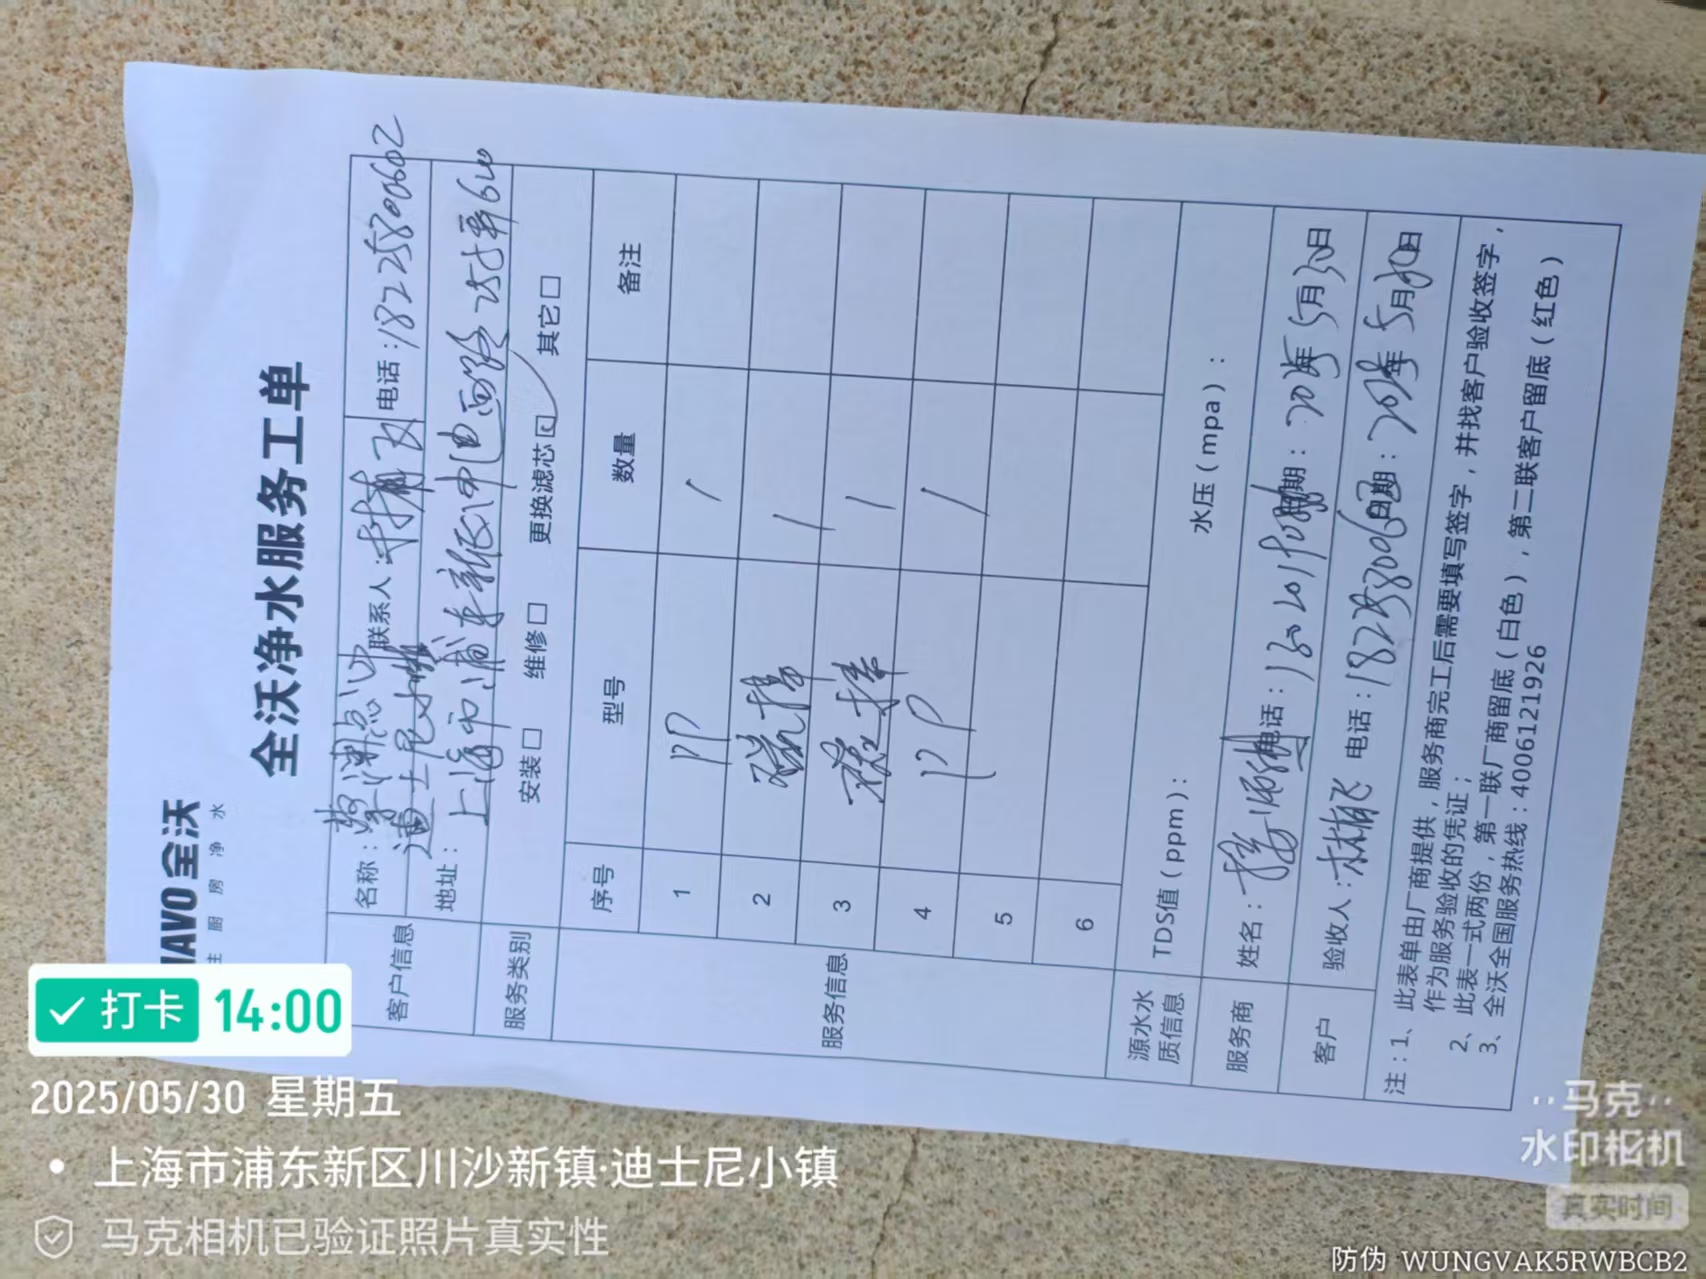 全沃
主 厨 房 净 水
全沃净水服务工单
客户信息
名称：
联系人：
电话：18225800602
迪士尼小镇
地址：上海市浦东新区申迪西路255弄
服务类别
安装□ 维修□ 更换滤芯☑ 其它□
服务信息
序号 型号 数量 备注
1 PP 1
2 1
3 1
4 PP 1
5
6
源水水质信息
TDS值（ppm）：
水压（mpa）：
服务商
姓名：
电话：
日期：2025年5月30日
客户
验收人：
电话：
日期：2025年5月30日
注：1、此表单由厂商提供，服务商完工后需要填写签字，并找客户验收签字，
作为服务验收的凭证；
2、此表一式两份，第一联厂商留底（白色），第二联客户留底（红色）
3、全沃全国服务热线：4006121926
打卡 14:00
2025/05/30 星期五
上海市浦东新区川沙新镇·迪士尼小镇
马克相机已验证照片真实性
马克
水印相机
真实时间
防伪 WUNGVAK5RWBCB2